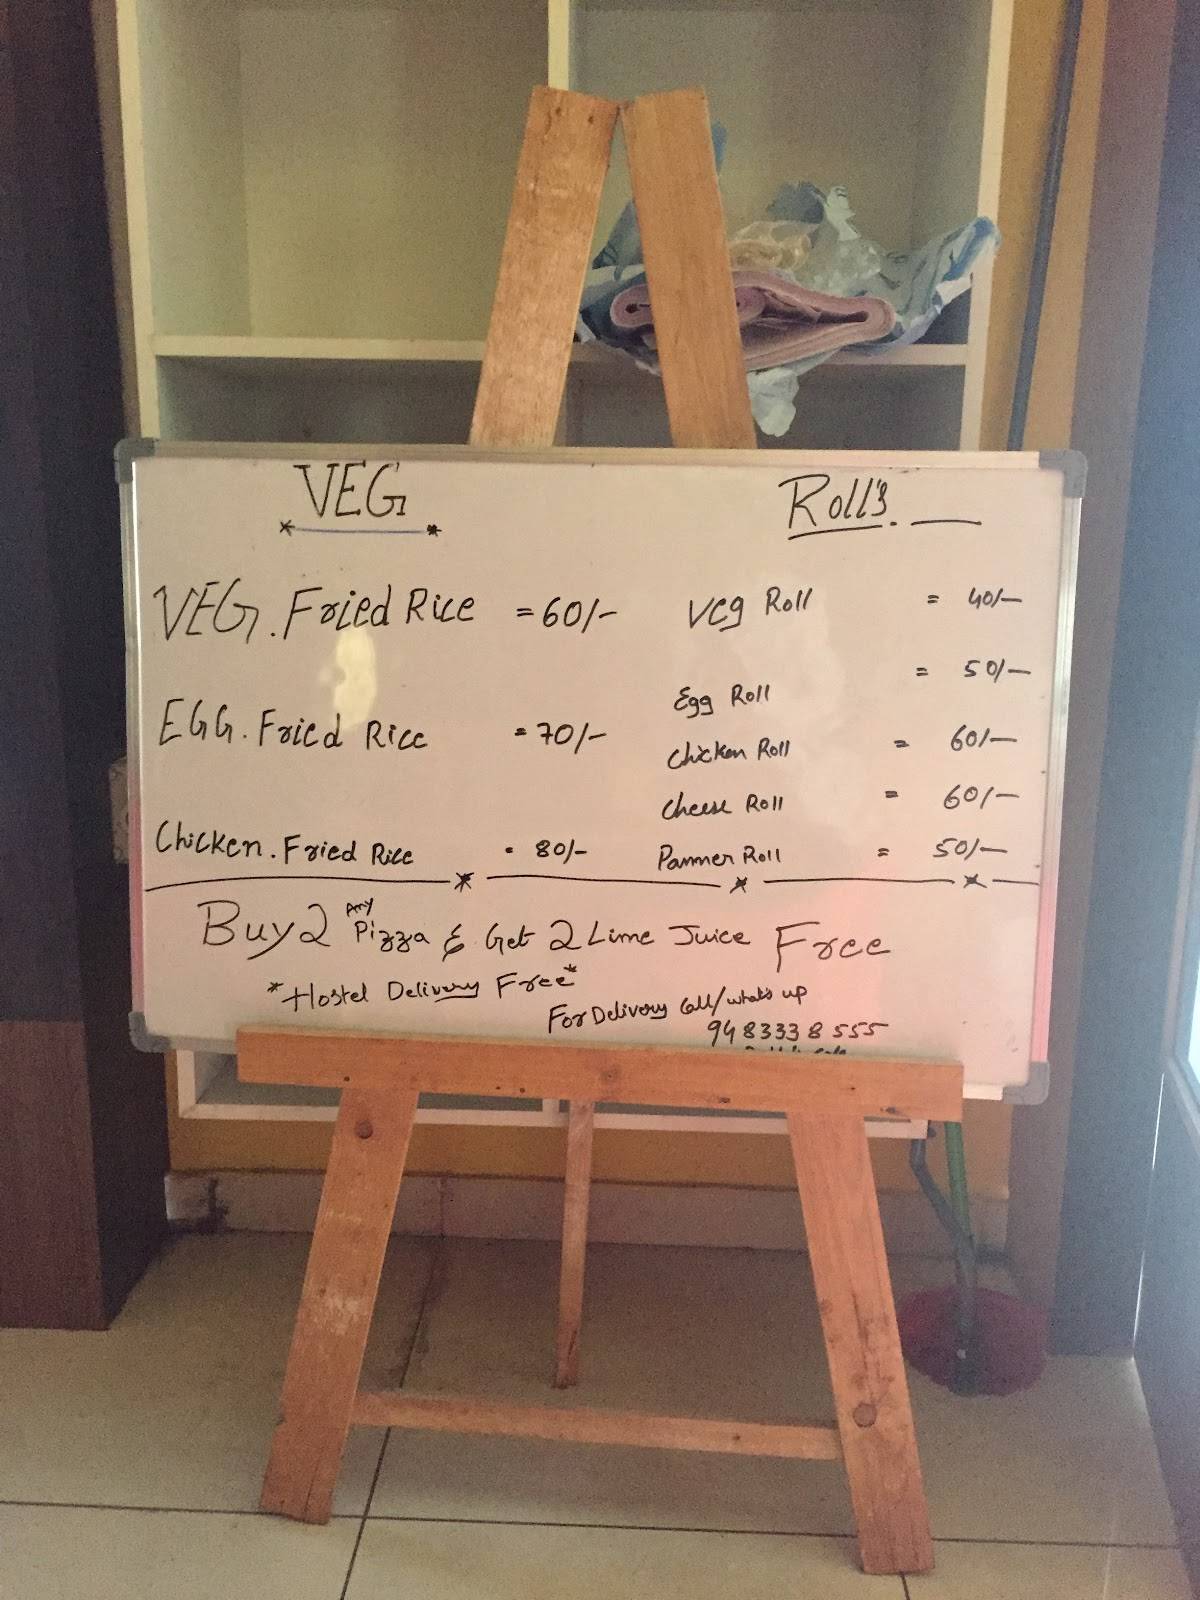 VEG
VEG. Fried Rice = 60/-
EGG. Fried Rice = 70/-
Chicken. Fried Rice = 80/-
Roll's.
Veg Roll = 40/-
Egg Roll = 50/-
Chicken Roll = 60/-
Cheese Roll = 60/-
Panner Roll = 50/-
Buy 2 Any Pizza & Get 2 Lime Juice Free
*Hostel Delivery Free*
For Delivery Call/what's up
9483338555